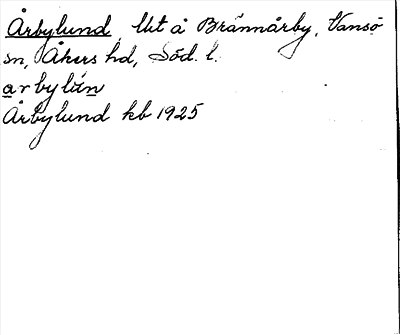 Årbylund, lht å Brännårby, Vansö
sn, Åkers hd, Söd. l.
arbylún
Årbylund kb 1925